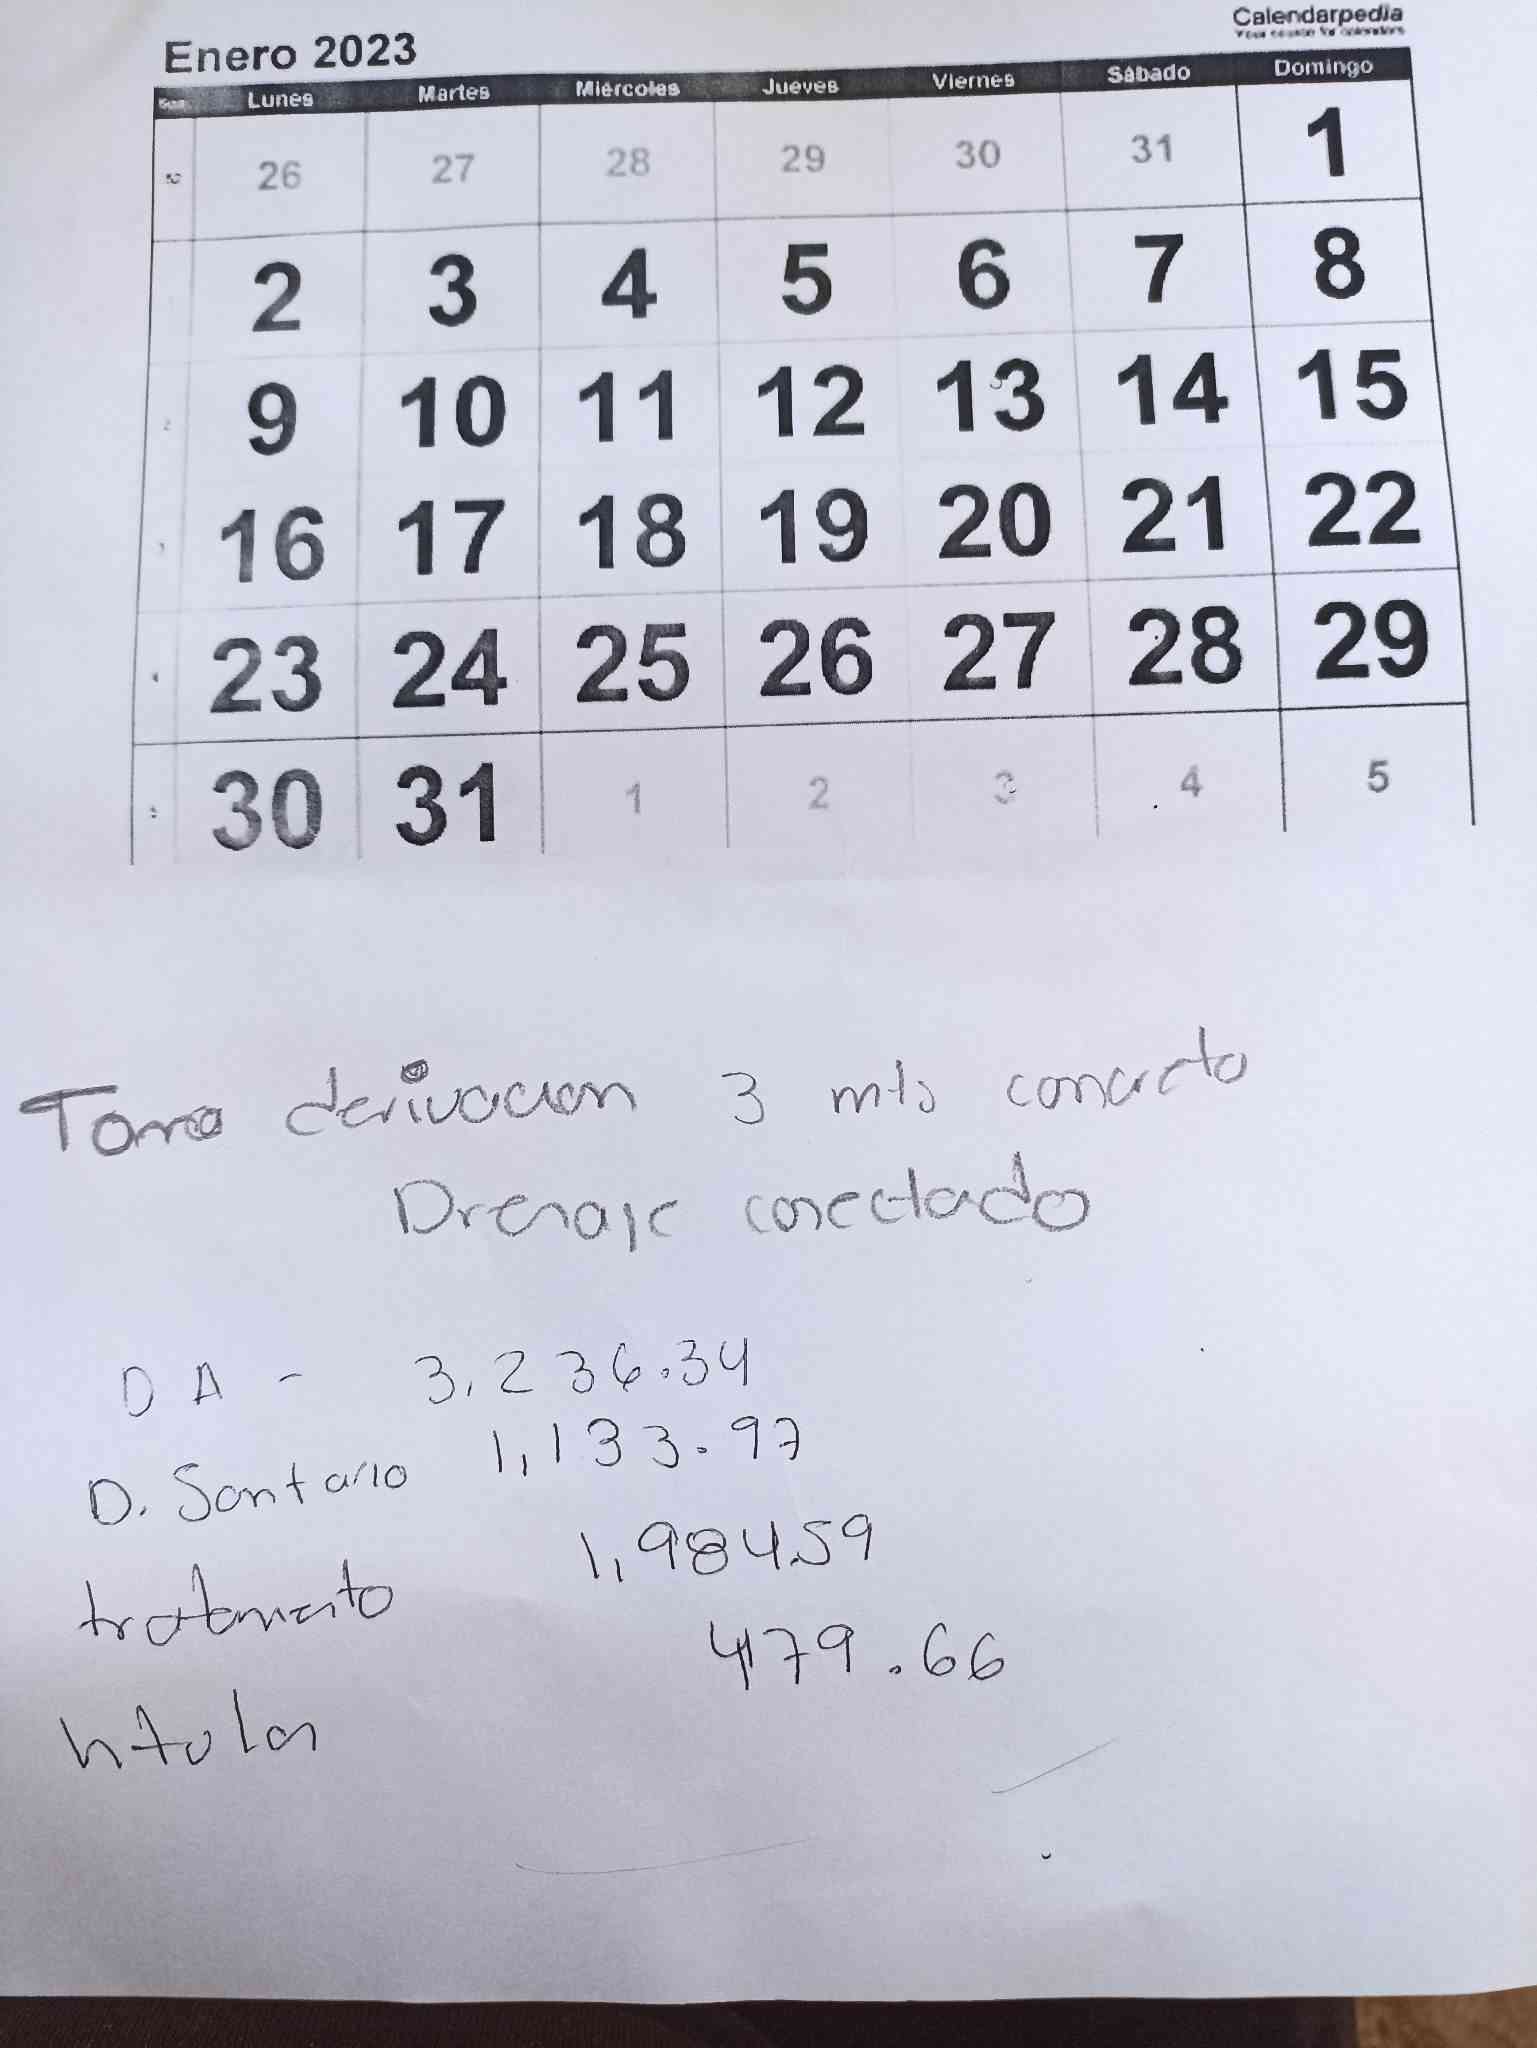 Calendarpedia
Your source for calendars
Enero 2023
Sem. Lunes Martes Miércoles Jueves Viernes Sábado Domingo
52 26 27 28 29 30 31 1
2 3 4 5 6 7 8
2 9 10 11 12 13 14 15
3 16 17 18 19 20 21 22
4 23 24 25 26 27 28 29
5 30 31 1 2 3 4 5
Toma derivacion 3 mts concreto
Drenaje conectado
D A - 3,236.34
D. Santario 1,133.97
tratamiento 1,984.59
479.66